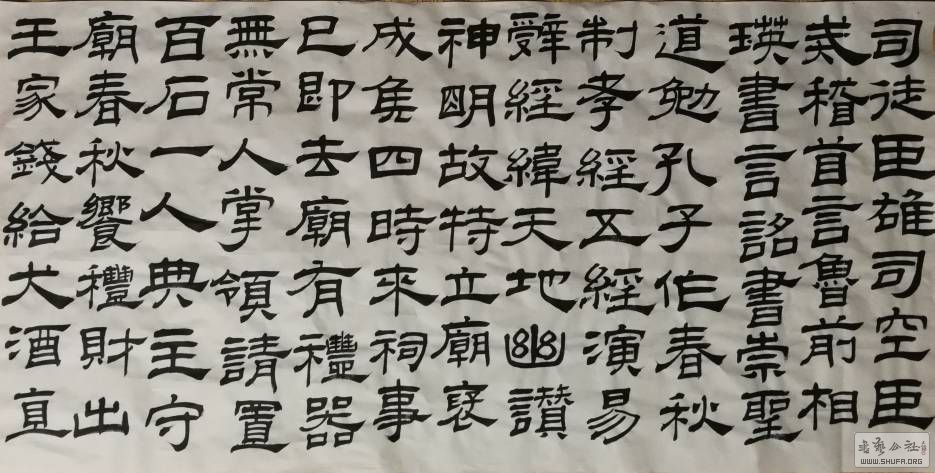 司徒臣雄司空臣
戒稽首言魯前相
瑛書言詔書崇聖
道勉孔子作春秋
制孝經五經演易
辭經緯天地幽讚
神明故特立廟褒
成侯四時來祠事
已即去廟有禮器
無常人掌領請置
百石一人典主守
廟春秋饗禮財出
王家錢給犬酒直
書藝公社
WWW.SHUFA.ORG